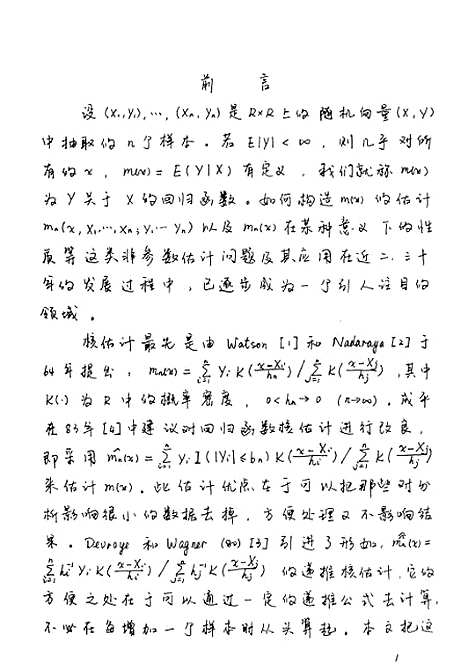 前 言
设 (X₁,Y₁),…, (Xₙ,Yₙ) 是 R×R 上的 随机向量 (X,Y)
中抽取的 n 个样本。若 E|Y| < ∞, 则几乎对所
有的 x, m(x) = E(Y|X) 有定义, 我们就称 m(x)
为 Y 关于 X 的回归函数。如何构造 m(x) 的估计
mₙ(x, X₁,…,Xₙ; Y₁…Yₙ) 以及 mₙ(x) 在某种意义下的性
质等这类非参数估计问题及其应用在近二、三十
年的发展过程中, 已逐步成为一个引人注目的
领域。
核估计最先是由 Watson [1] 和 Nadaraya [2] 于
64 年提出: mₙ(x) = Σⁿᵢ₌₁ Yᵢ K((x-Xᵢ)/hₙ) / Σⁿⱼ₌₁ K((x-Xⱼ)/hⱼ), 其中
K(·) 为 R 中的概率密度, 0<hₙ→0 (n→∞)。成平
在 83 年 [4] 中建议对回归函数核估计进行改良,
即采用 m̂ₙ(x) = Σⁿᵢ₌₁ Yᵢ I(|Yᵢ|≤bₙ) K((x-Xᵢ)/hᵢ) / Σⁿⱼ₌₁ K((x-Xⱼ)/hⱼ)
来估计 m(x)。此估计优点在于可以把那些对分
析影响很小的数据去掉, 方便处理又不影响结
果。Devroye 和 Wagner (80) [3] 引进了形如, m̃ₙ(x) =
Σⁿᵢ₌₁ hᵢ⁻¹ Yᵢ K((x-Xᵢ)/hᵢ) / Σⁿⱼ₌₁ hⱼ⁻¹ K((x-Xⱼ)/hⱼ) 的递推核估计, 它的
方便之处在于可以通过一定的递推公式去计算,
不必在每增加一个样本时从头算起。本文把这
1